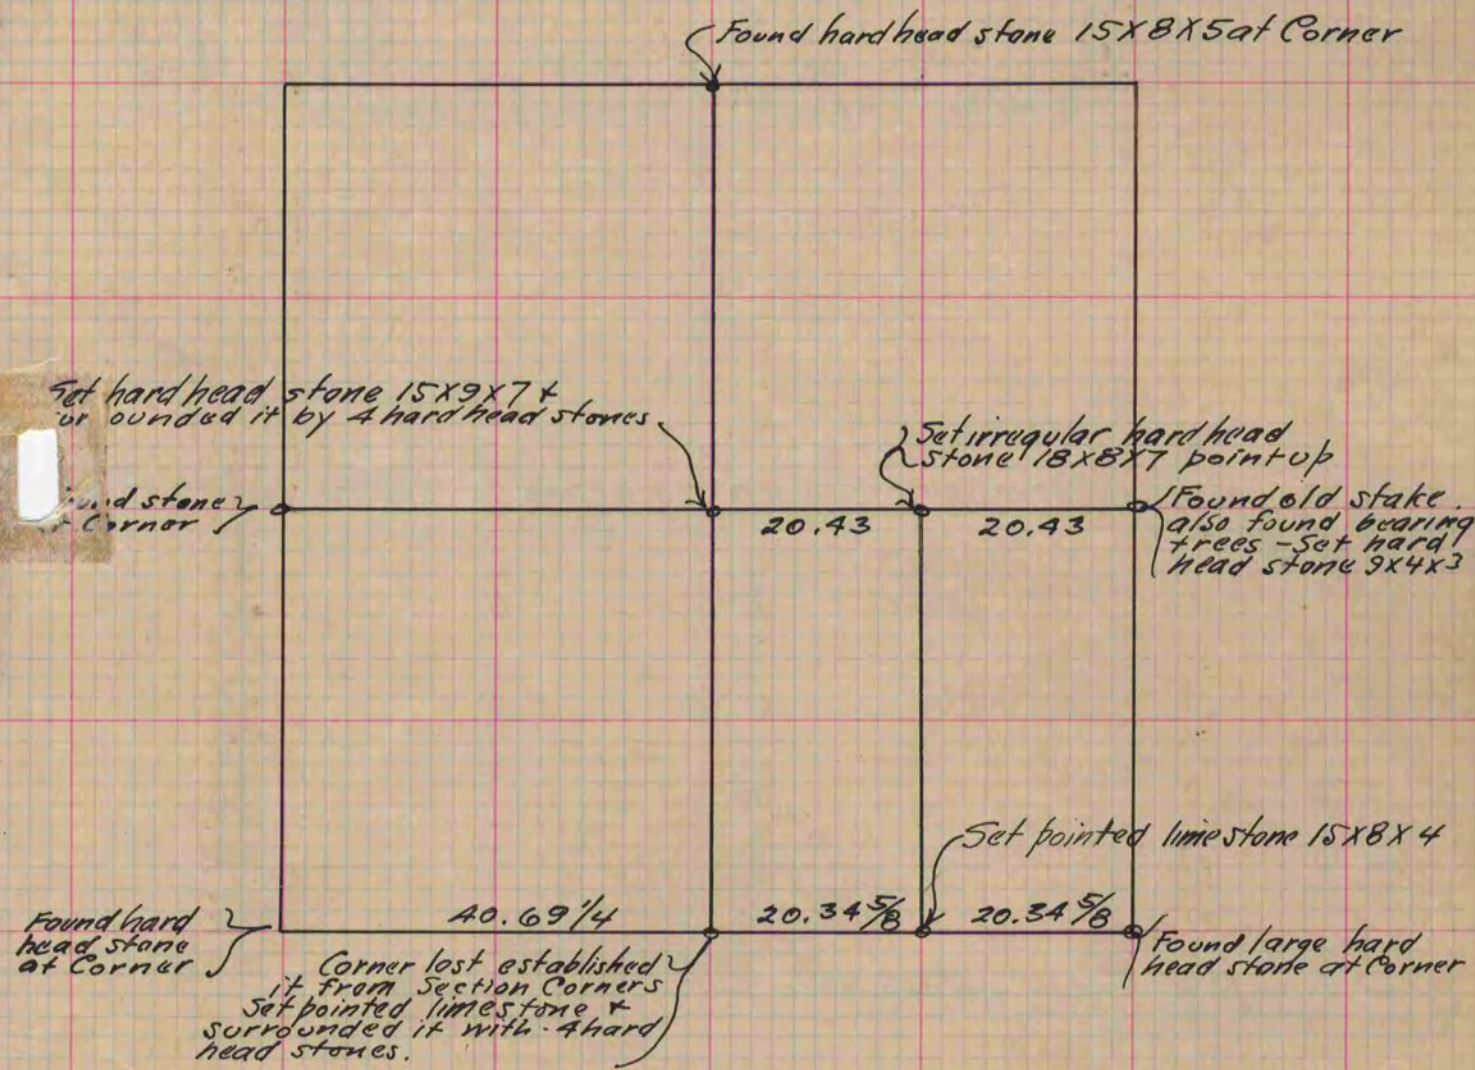 Found hard head stone 15X8X5 at Corner
Set hard head stone 15X9X7 &
ounded it by 4 hard head stones
Set irregular hard head
stone 18X8X7 point up
stone
Corner
20.43
20.43
Found old stake.
also found bearing
trees - Set hard
head stone 9X4X3
Set pointed limestone 15X8X4
Found hard
head stone
at Corner
40.69 1/4
20.34 5/8
20.34 5/8
Found large hard
head stone at Corner
Corner lost established
it from Section Corners
Set pointed limestone &
surrounded it with 4 hard
head stones.